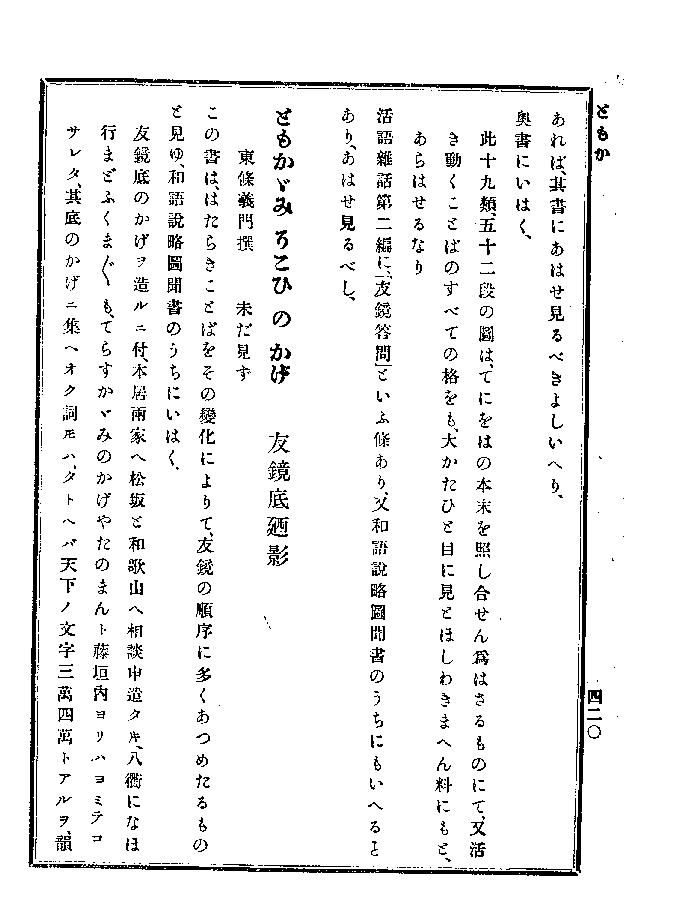 ともか
四二〇
あれば、其書にあはせ見るべきよしいへり、
奧書にいはく、
此十九類、五十二段の圖は、てにをはの本末を照し合せん爲はさるものにて、又活
き動くことばのすべての格をも、大かたひと目に見とほしわきまへん料にもと、
あらはせるなり
活語雜話第二編に、「友鏡答問」といふ條あり、又和語說略圖聞書のうちにもいへると
あり、あはせ見るべし、
ともかゞみ そこひ の かげ 友鏡底廼影
東條義門撰 未だ見ず
この書は、はたらきことばをその變化によりて、友鏡の順序に多くあつめたるもの
と見ゆ、和語說略圖聞書のうちにいはく、
友鏡底のかげヲ造ルニ付、本居兩家へ松坂と和歌山へ相談申遣タル、八衢になほ
行まどふくまぐ〵も、てらすかゞみのかげやたのまんト藤垣內ヨリハヨミテコ
サレタ、其底のかげニ集ヘオク詞モハ、タトヘバ天下ノ文字三萬四萬トアルヲ、韻